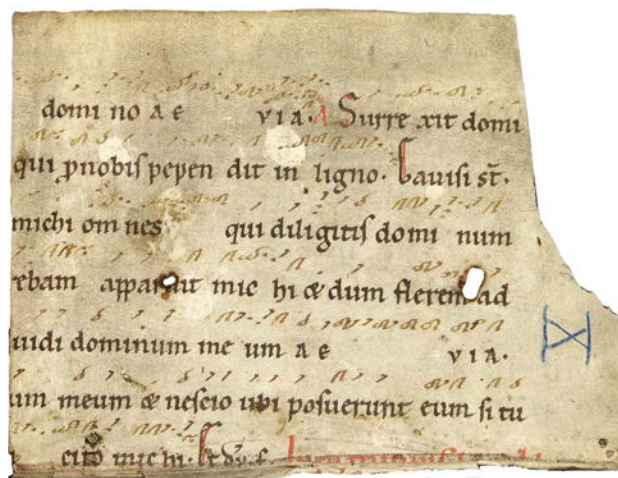 domi no a e via. A Surre xit domi
qui pnobis pepen dit in ligno. Gavisi st.
michi om nes qui diligitis domi num
rebam apparuit mic hi & dum flerem ad
uidi dominum me um a e via.
um meum & nescio ubi posuerunt eum si tu
cito mic hi.